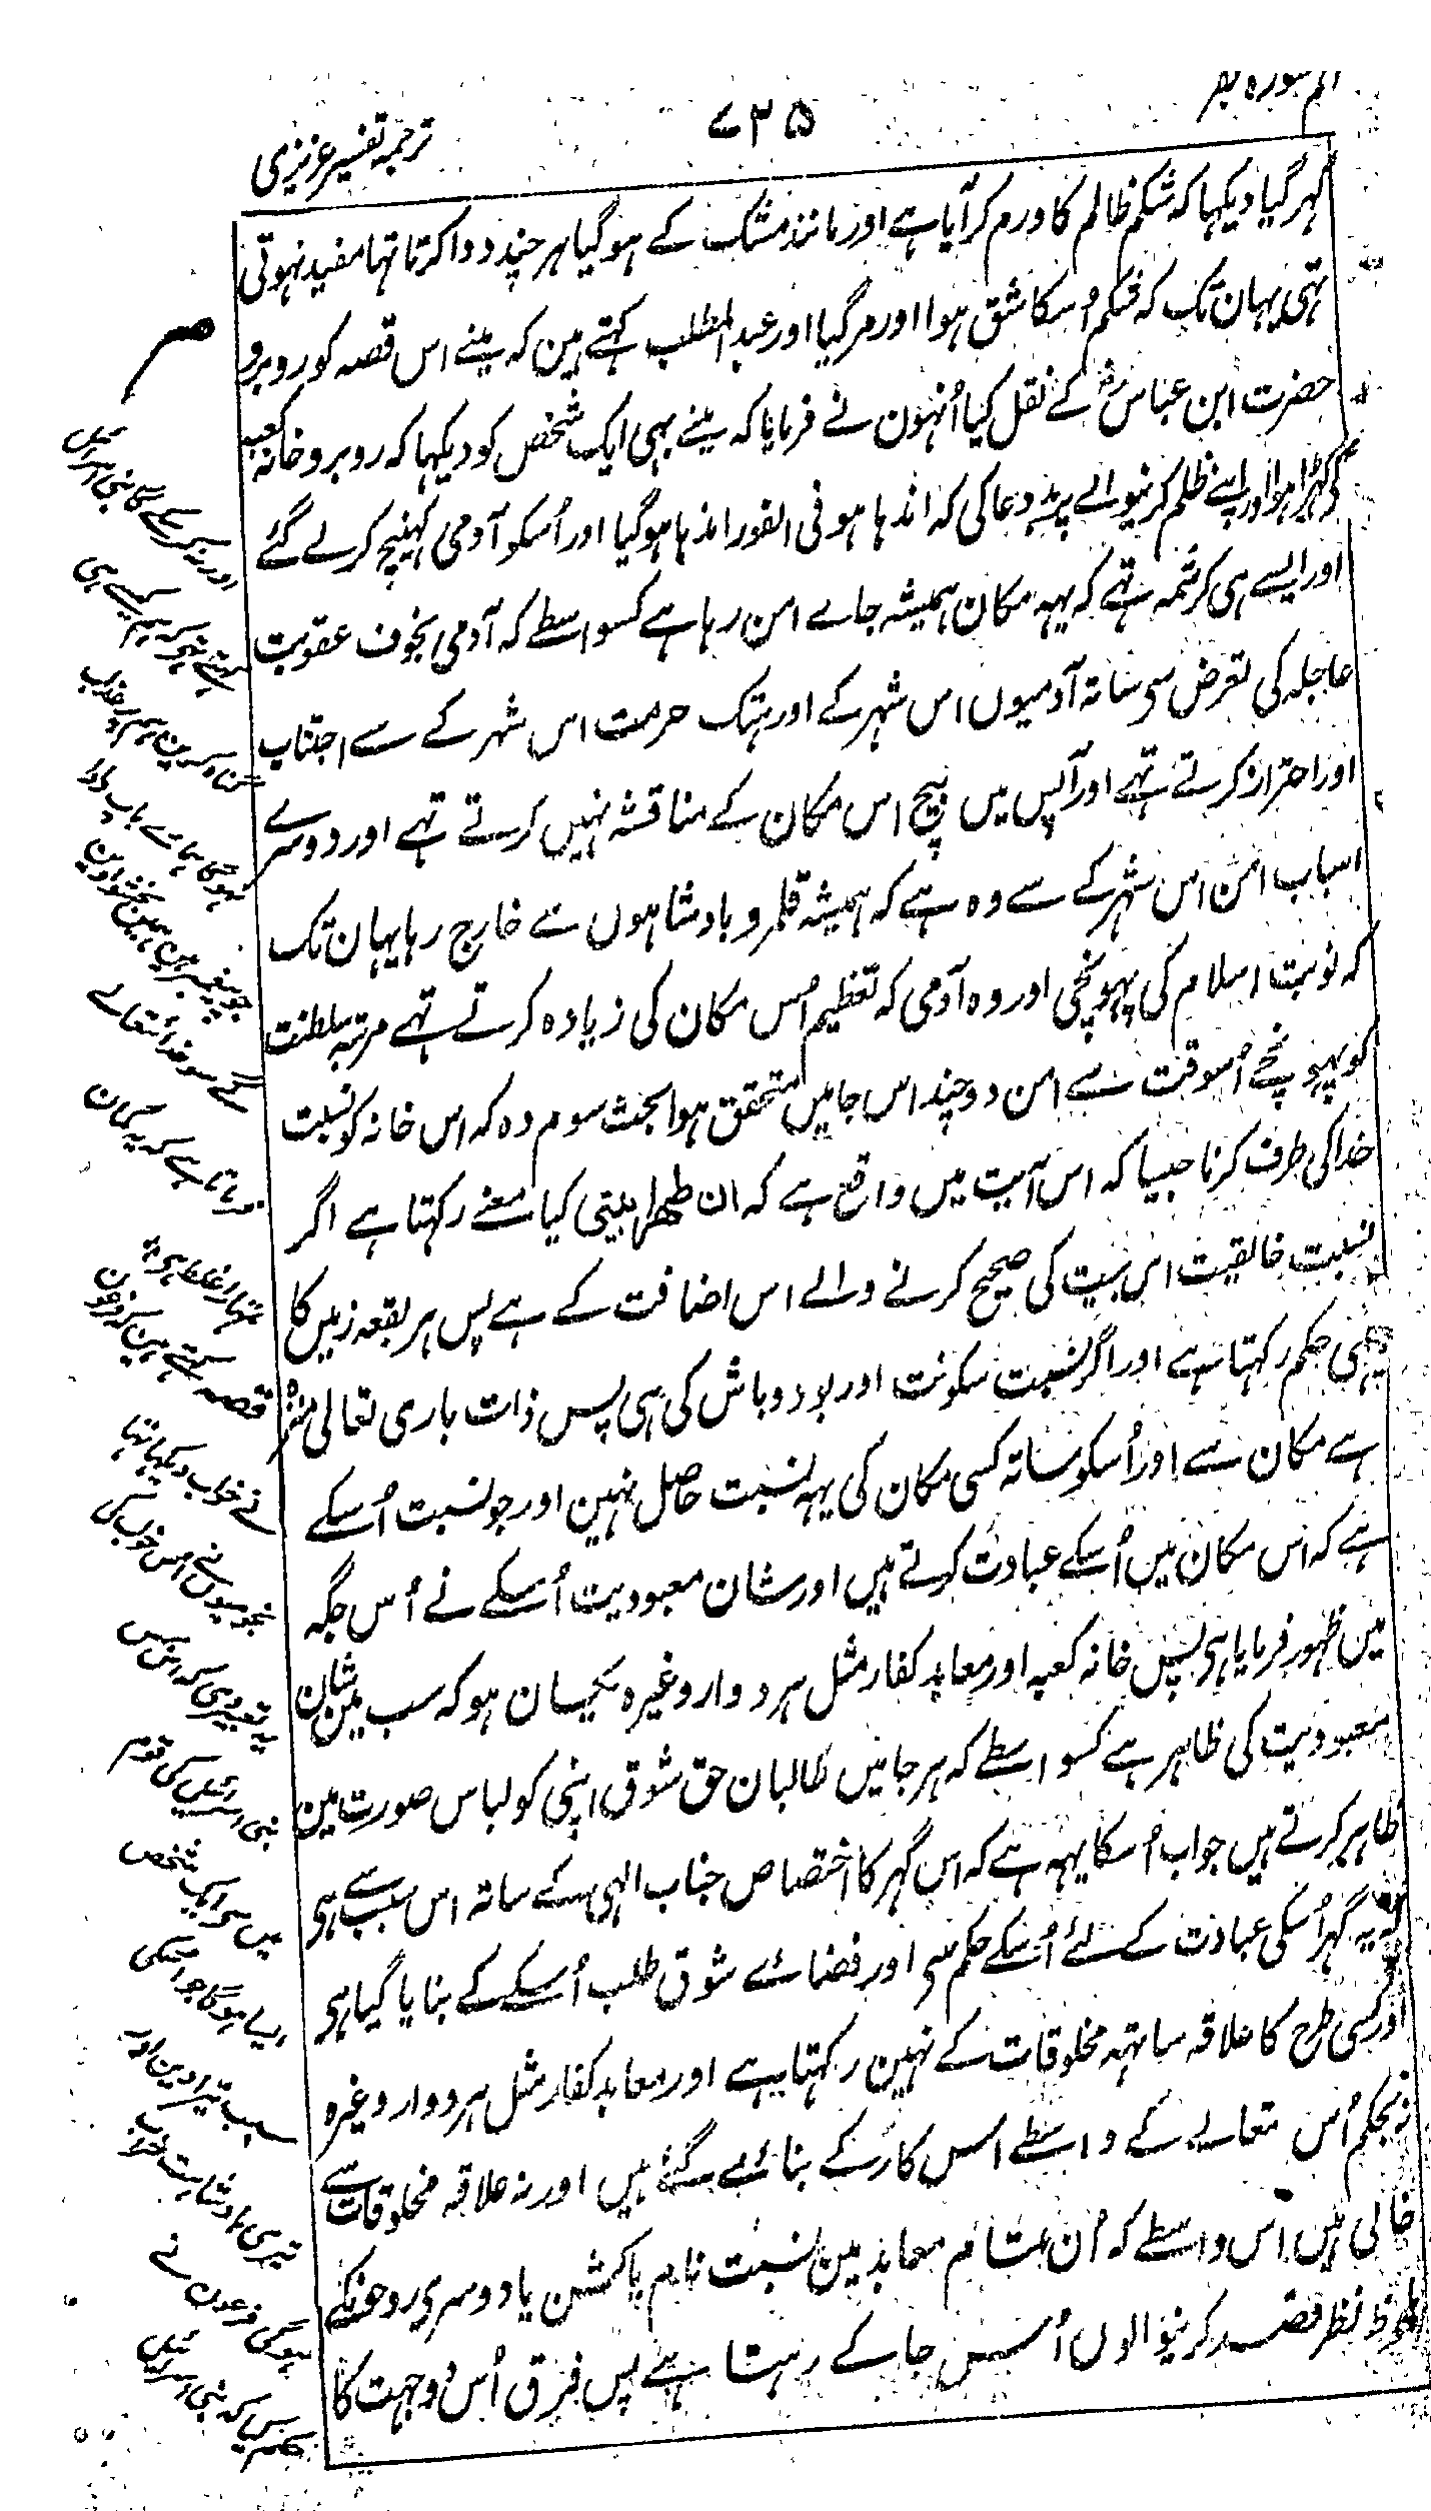 الم سورہ بقر
۷۳۵
ترجمہ تفسیر عزیزی
گہر گیا دیکہا کہ شکم ظالم کا ورم کر آیا ہے اور مانند مشک کے ہو گیا ہر چند دوا کرتا تہا مفید نہوتی
تہی یہان تک کہ شکم اُسکا شق ہوا اور مر گیا اور عبد المطلب کہتے ہین کہ مینے اس قصہ کو روبرو
حضرت ابن عباس رض کے نقل کیا اُنہون نے فرمایا کہ مینے بہی ایک شخص کو دیکہا کہ روبرو خانہ کعبہ
کے کہڑا ہوا اور اپنے ظلم کرنیوالے پر بد دعا کی کہ اندہا ہو فی الفور اندہا ہو گیا اور اُسکو آدمی کہینچ کر لے گئے
اور ایسے ہی کرشمہ تہے کہ یہہ مکان ہمیشہ جاے امن رہا ہے کسواسطے کہ آدمی بخوف عقوبت
عاجلہ کی تعرض سی ساتہ آدمیوں اس شہر کے اور ہتک حرمت اس شہر کے سے اجتناب
اور احتراز کرتے تہے اور آپس میں بیچ اس مکان کے مناقشہ نہیں کرتے تہے اور دوسرے
اسباب امن اس شہر کے سے وہ ہے کہ ہمیشہ قلمرو بادشاہوں سے خارج رہا یہان تک
کہ نوبت اسلام کی پہونچی اور وہ آدمی کہ تعظیم اُس مکان کی زیادہ کرتے تہے مرتبہ سلطنت
کو پہونچے اُسوقت سے امن دوچند اس جا میں متحقق ہوا بحث سوم وہ کہ اس خانہ کو نسبت
خدا کی طرف کرنا جیسا کہ اس آیت میں واقع ہے کہ ان طھرا بیتی کیا معنے رکہتا ہے اگر
نسبت خالقیت اس بیت کی صحیح کرنے والے اس اضافت کے ہے پس ہر بقعہ زمیں کا
یہی حکم رکہتا ہے اور اگر نسبت سکونت اور بود و باش کی ہی پس ذات باری تعالی منزہ
ہے مکان سے اور اُسکو ساتہ کسی مکان کی یہہ نسبت حاصل نہین اور جو نسبت اُسکے
ہے کہ اس مکان میں اُسکے عبادت کرتے ہیں اور شان معبودیت اُسکے نے اُس جگہ
مین ظہور فرمایا ہی پس خانہ کعبہ اور معابد کفار مثل ہردوار وغیرہ یکسان ہو کہ سب مین شان
معبودیت کی ظاہر ہے کسواسطے کہ ہر جا میں طالبان حق شوق اپنی کو لباس صورت مین
ظاہر کرتے ہیں جواب اُسکا یہہ ہے کہ اس گہر کا اختصاص جناب الہی کے ساتہ اس سبب سے ہی
کہ یہ گہر اُسکی عبادت کے لئے اُسکے حکم سی اور فضائے شوق طلب اُسکے کے بنایا گیا ہی
اور کسی طرح کا علاقہ ساتہہ مخلوقات کے نہین رکہتا ہے اور معابد کفار مثل ہردوار وغیرہ
نہ بحکم اُس تعالے کے واسطے اُس کار کے بنائے گئے ہیں اور نہ علاقہ مخلوقات سے
خالی ہیں اس واسطے کہ اُن تمام معابد مین نسبت بنام یا کشن یا دوسری روحونکے
ملحوظ نظر قصد کرنیوالوں اُس جا کے رہتا ہے پس فرق اُس وجہت کا
ہوگا ہمارے باپ دادا
فرماتا ہے کہ یہ گمان
تمہارا غلط ہی ۱۲
قصہ کہتے ہین کہ فرعون
نے خواب دیکہا تہا
نجومیوں نے اس خواب کی
یہ تعبیر دی کہ اس
بنی اسرائیل کی قوم
میں سی ایک شخص